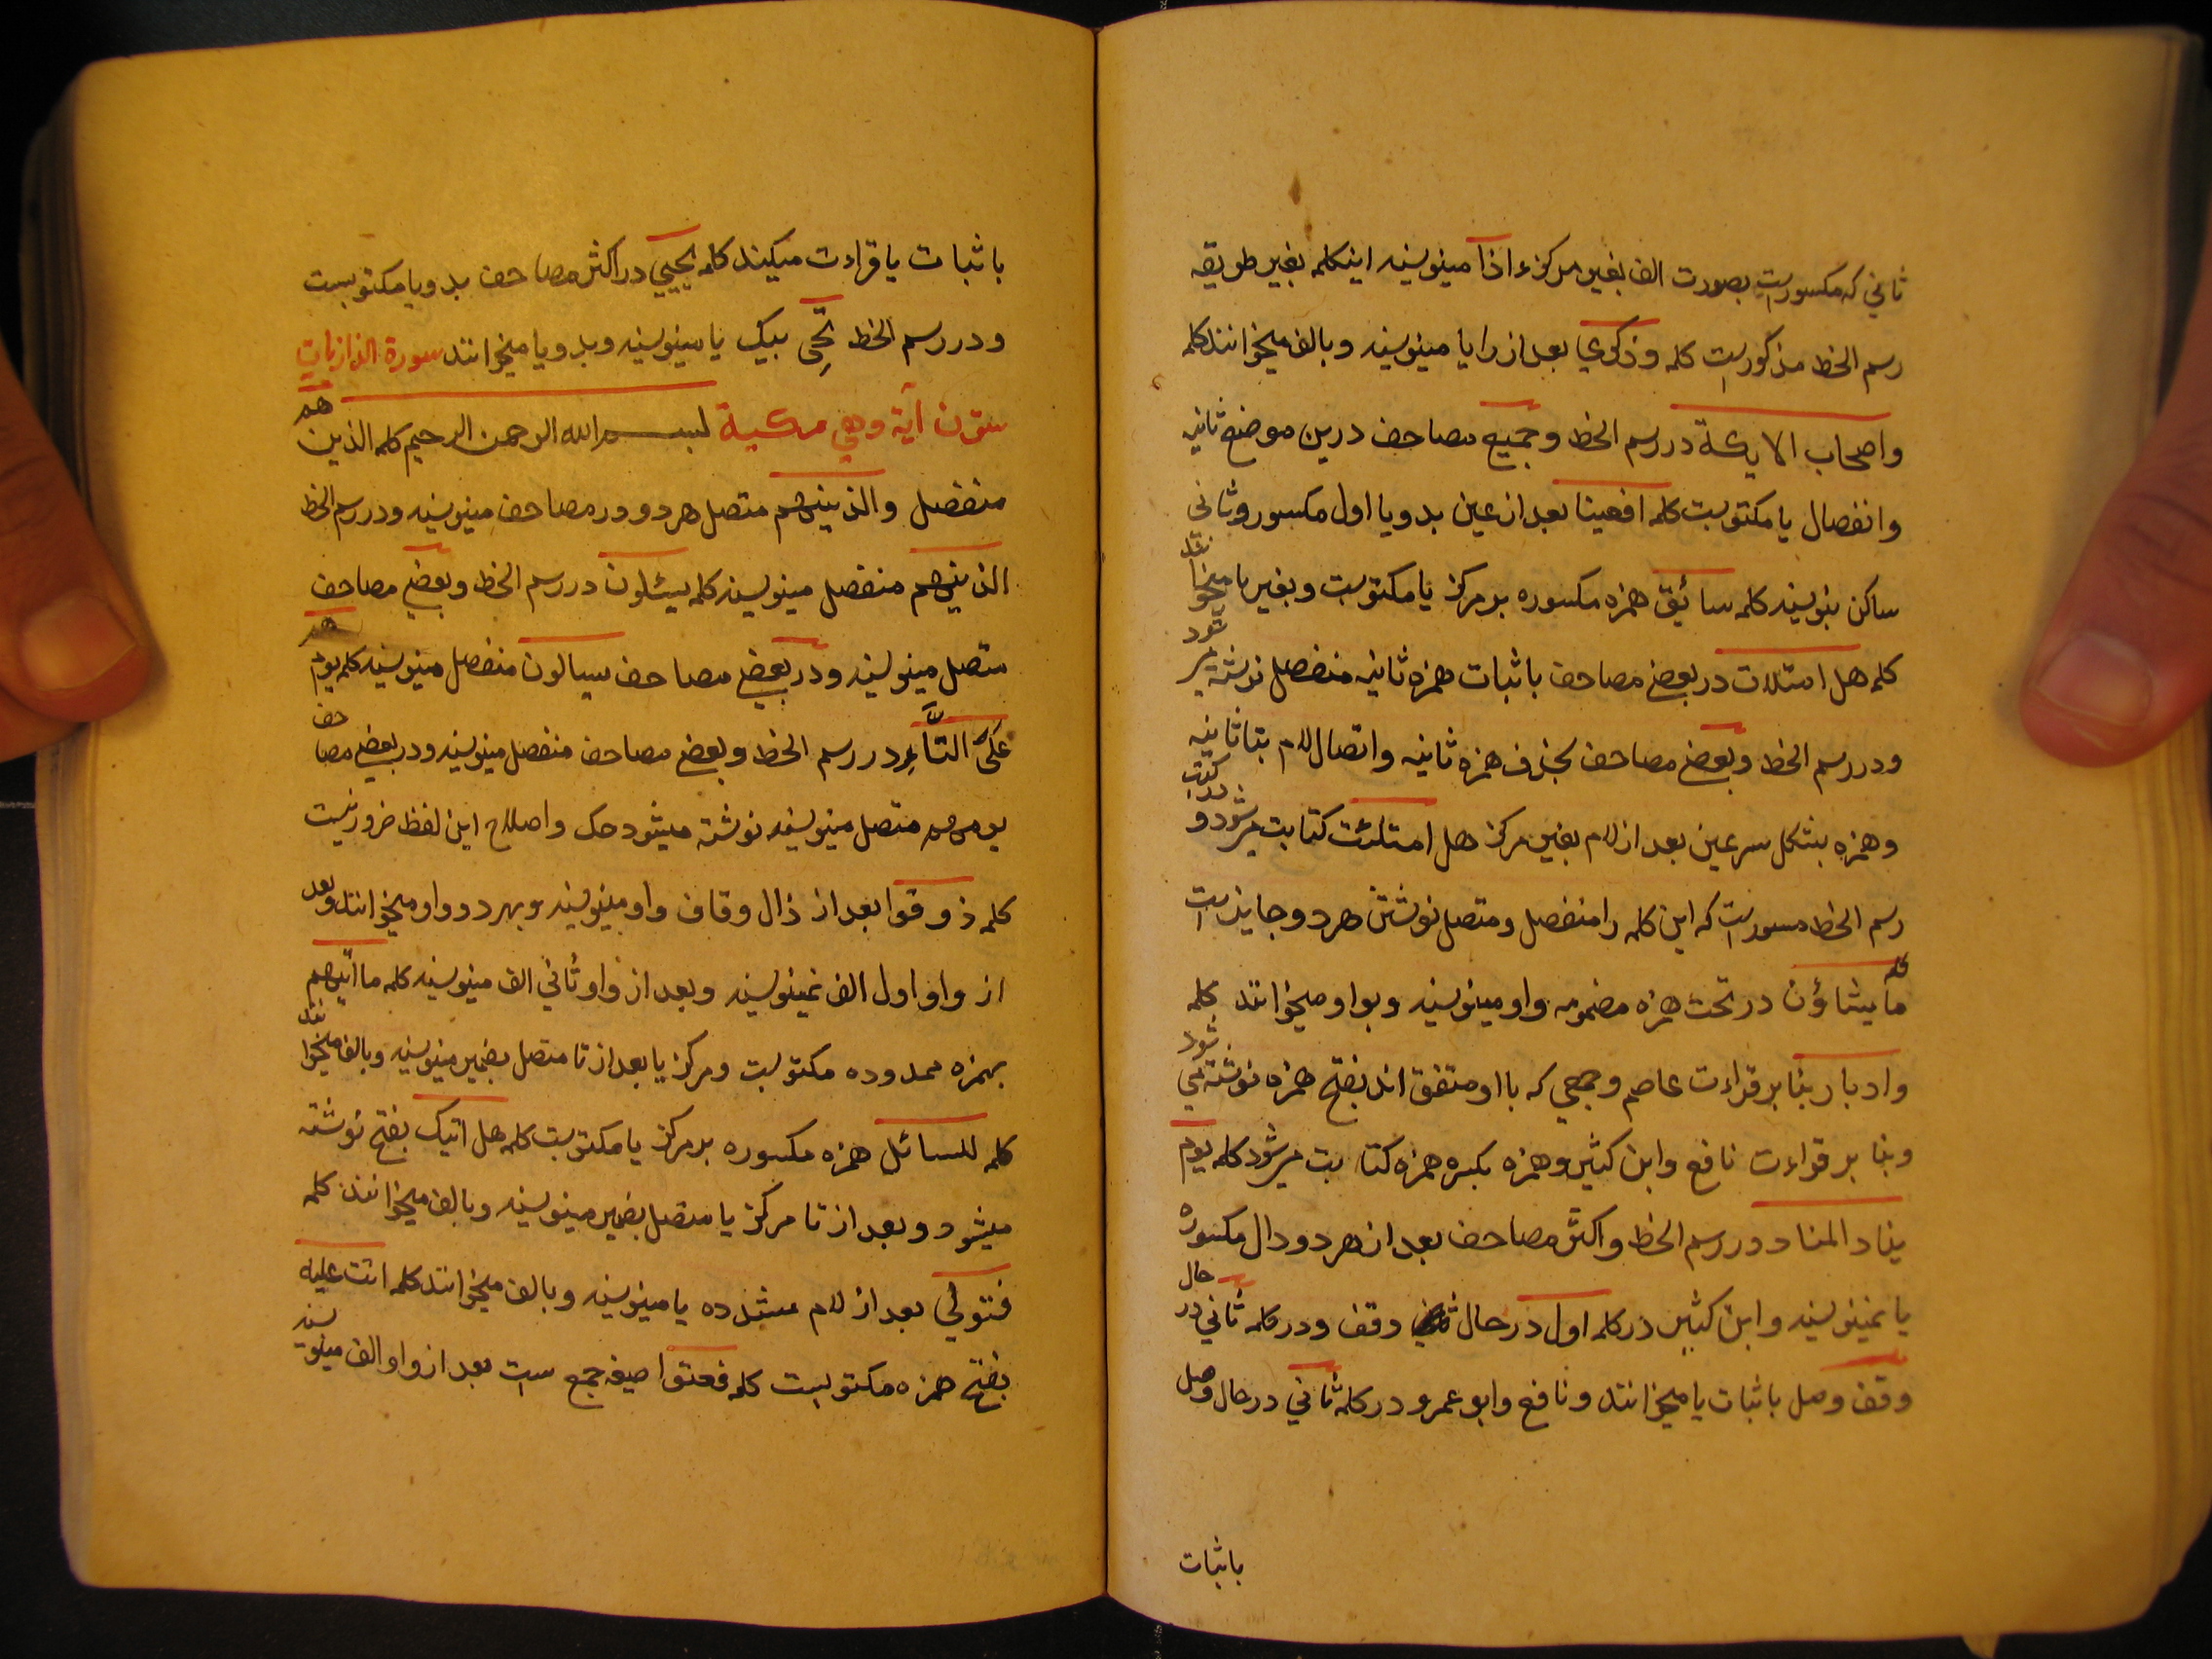 ثاني که مکسورست بصورت الف بغیر مرکزء اذا مینویسند اینکلمه بغیر طریقه
رسم الخط مذکورست کلمه وذکري بعد از را یا مینویسند و بالف میخوانند کلمه
واصحاب الایکة در رسم الخط و جمیع مصاحف درین موضع ثانیه
وانفصال یا مکتوبست کلمه افعینا بعد از عین بدو یا اول مکسور و ثانی
ساکن بنویسند کلمه سائق همزه مکسوره بر مرکز یا مکتوبست و بغیر یا میخوانند
کلمه هل امتلات در بعضي مصاحف باثبات همزه ثانیه منفصل نوشته میشود
ودر رسم الخط و بعضي مصاحف بحذف همزه ثانیه و اتصال لام بتا ثانیه
وهمزه بشکل سر عین بعد از لام بغیر مرکز هل امتلئت کتابت میشود و در کتب
رسم الخط مسورست که این کلمه را منفصل و متصل نوشتن هر دو جایزست
کلمه ما یشاؤن در تحت همزه مضمومه واو مینویسند و بواو میخوانند کلمه
وادبار بنا بر قراءت عاصم و جمعي که با او متفق اند بفتح همزه نوشته مي شود
وبنا بر قراءت نافع و ابن کثیر و همزه بکسره همزه کتابت میشود کلمه یوم
یناد المناد در رسم الخط و اکثر مصاحف بعد از هر دو دال مکسوره
یا نمینویسند و ابن کثیر در کلمه اول در حال وقف و در کلمه ثاني در حال
وقف وصل باثبات یا میخوانند و نافع و ابو عمرو در کلمه ثاني در حال وصل
باثبات
باثبات یا قراءت میکنند کلمه یحیي در اکثر مصاحف بدو یا مکتوبست
ودر رسم الخط نحي بیک یا مینویسند و بدو یا میخوانند سورة الذاریات
ستون آیة وهي مکیة بسم الله الرحمن الرحیم کلمه الذین هم
منفصل والذینهم متصل هر دو در مصاحف مینویسند و در رسم الخط
الذینهم منفصل مینویسند کلمه یسئلون در رسم الخط و بعضي مصاحف
متصل مینویسند و در بعضي مصاحف یسالون منفصل مینویسند کلمه یوم هم
علی النّار در رسم الخط و بعضي مصاحف منفصل مینویسند و در بعضي مصاحف
یومهم متصل مینویسند نوشته میشود حک و اصلاح این لفظ ضرور نیست
کلمه ذوقوا بعد از ذال و قاف واو مینویسند و بهر دو واو میخوانند و بعد
از واو اول الف نمینویسند و بعد از واو ثاني الف مینویسند کلمه ما اتیهم
بهمزه ممدوده مکتوبست و مرکز یا بعد از تا متصل بضمیر مینویسند و بالف میخوانند
کلمه للسائل همزه مکسوره بر مرکز یا مکتوبست کلمه هل اتیک بفتح نوشته
میشود و بعد از تا مرکز یا متصل بضمیر مینویسند و بالف میخوانند کلمه
فتولي بعد از لام مشدده یا مینویسند و بالف میخوانند کلمه اتت علیه
بفتح همزه مکتوبست کلمه فعتوا صیغه جمع ست بعد از واو الف مینویسند